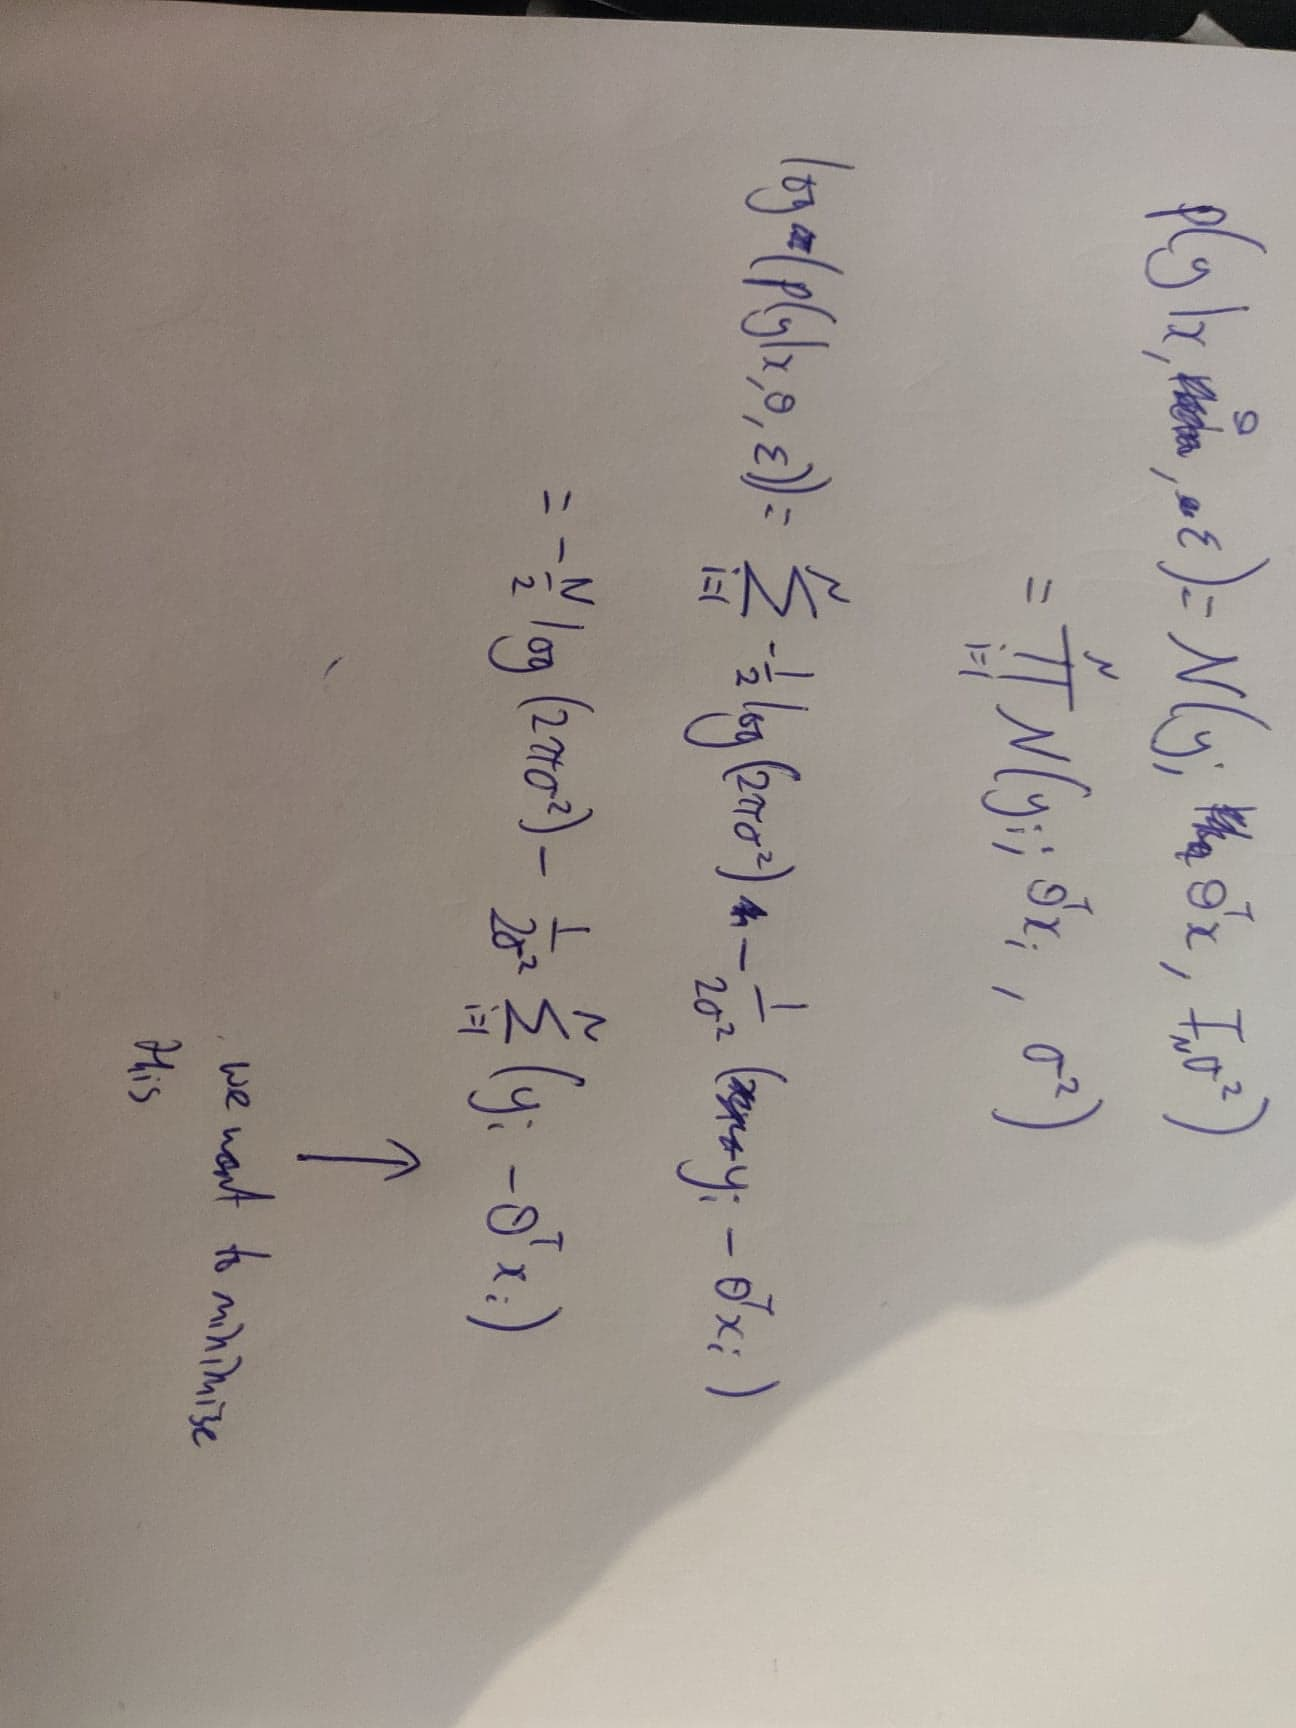 p(y|x, θ, ε) = N(y; θᵀx, I_Nσ²)
= ∏_{i=1}^{N} N(y_i; θᵀx_i, σ²)
log(p(y|x,θ,ε)) = ∑_{i=1}^{N} -1/2 log(2πσ²) - 1/2σ² (y_i - θᵀx_i)
= -N/2 log(2πσ²) - 1/2σ² ∑_{i=1}^{N} (y_i - θᵀx_i)
↑
we want to minimise
this